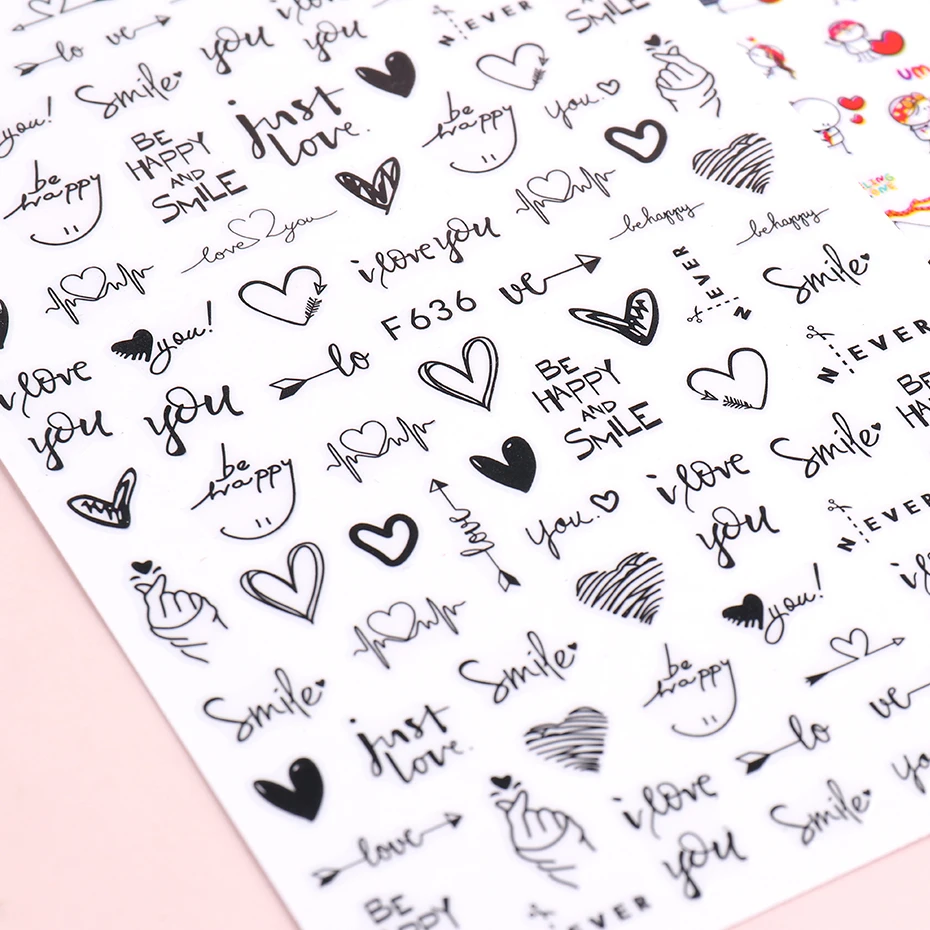 i love
you
you
NEVER
AND
SMILE
lo
ve
Smile
you!
be
happy
BE
HAPPY
AND
SMILE
just
love.
be
happy
you.
love you
i love you
behappy
behappy
NEVER
Smile
NEVER
you!
F636
ve
lo
i love
you
you
BE
HAPPY
AND
SMILE
BE
be
happy
love
you.
i love
you
Smile
NEVER
you!
Smile
Smile
be
happy
just
love.
lo
ve
love
i love
you
Smile
BE
HAPPY
EVER